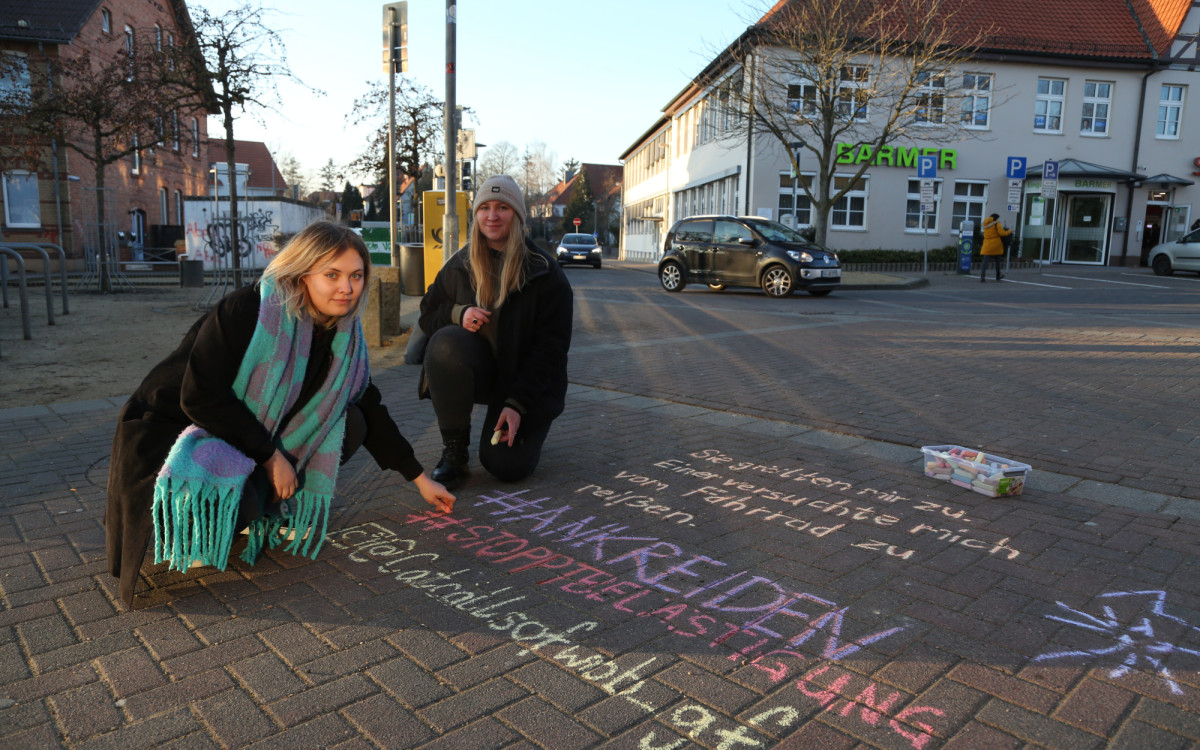 BARMER
P
P
P
BARMER
Sie gröllten mir zu.
Einer versuchte mich
vom Fahrrad zu
reißen.
#ANKREIDEN
#STOPPTBELÄSTIGUNG
@catcallsofwob_gf